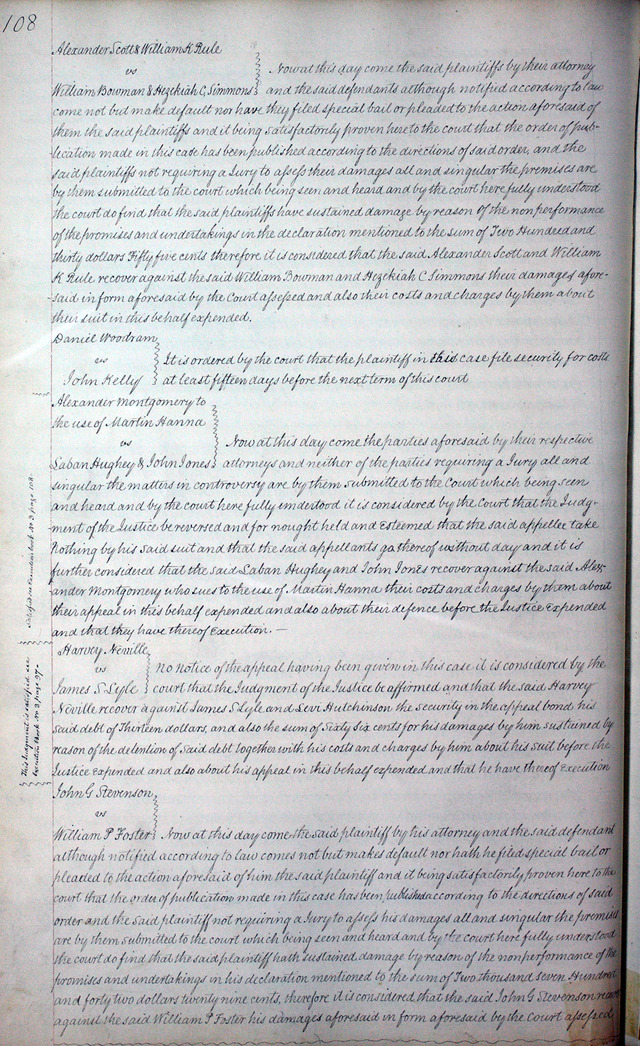 108
Alexander Scott & William K Rule
vs
William Bowman & Hezekiah C Simmons
Now at this day come the said plaintiffs by their attorney
and the said defendants although notified according to law
come not but make default nor have they filed special bail or pleaded to the action aforesaid of
them the said plaintiffs and it being satisfactorily proven here to the court that the order of pub-
lication made in this case has been published according to the directions of said order, and the
said plaintiffs not requiring a Jury to assess their damages all and singular the premises are
by them submitted to the court which being seen and heard and by the court here fully understood
the court do find that the said plaintiffs have sustained damage by reason of the nonperformance
of the promises and undertakings in the declaration mentioned to the sum of Two Hundred and
thirty dollars Fifty five cents therefore it is considered that the said Alexander Scott and William
K Rule recover against the said William Bowman and Hezekiah C Simmons their damages afore-
said in form aforesaid by the Court assessed and also their costs and charges by them about
their suit in this behalf expended.
Daniel Woodram
vs
John Kelly
It is ordered by the court that the plaintiff in this case file security for costs
at least fifteen days before the next term of this court
Alexander Montgomery to
the use of Martin Hanna
vs
Laban Hughey & John Jones
Now at this day come the parties aforesaid by their respective
attorneys and neither of the parties requiring a Jury all and
singular the matters in controversy are by them submitted to the Court which being seen
and heard and by the court here fully understood it is considered by the Court that the Judg-
ment of the Justice be reversed and for nought held and Esteemed that the said appellee take
Nothing by his said suit and that the said appellants go thereof without day and it is
further considered that the said Laban Hughey and John Jones recover against the said Alex-
ander Montgomery who sues to the use of Martin Hanna their costs and charges by them about
their appeal in this behalf expended and also about their defence before the Justice expended
and that they have thereof Execution. —
Satisfied see Execution book No 3 page 108.
Harvey Neville
vs
James S Lyle
No notice of the appeal having been given in this case it is considered by the
court that the Judgment of the Justice be affirmed and that the said Harvey
Neville recover against James S Lyle and Levi Hutchinson the security in the appeal bond his
said debt of Thirteen dollars, and also the sum of Sixty Six cents for his damages by him sustained by
reason of the detention of said debt together with his costs and charges by him about his suit before the
Justice Expended and also about his appeal in this behalf expended and that he have thereof Execution
This Judgment is satisfied see
Execution Book No 3 page 97
John G Stevenson
vs
William P Foster
Now at this day come the said plaintiff by his attorney and the said defendant
although notified according to law comes not but makes default nor hath he filed special bail or
pleaded to the action aforesaid of him the said plaintiff and it being satisfactorily proven here to the
court that the order of publication made in this case has been published according to the directions of said
order and the said plaintiff not requiring a Jury to assess his damages all and singular the premises
are by them submitted to the court which being seen and heard and by the court here fully understood
the court do find that the said plaintiff hath sustained damage by reason of the nonperformance of the
promises and undertakings in his declaration mentioned to the sum of Two thousand seven Hundred
and forty two dollars twenty nine cents, therefore it is considered that the said John G Stevenson
against the said William P Foster his damages aforesaid in form aforesaid by the Court assessed